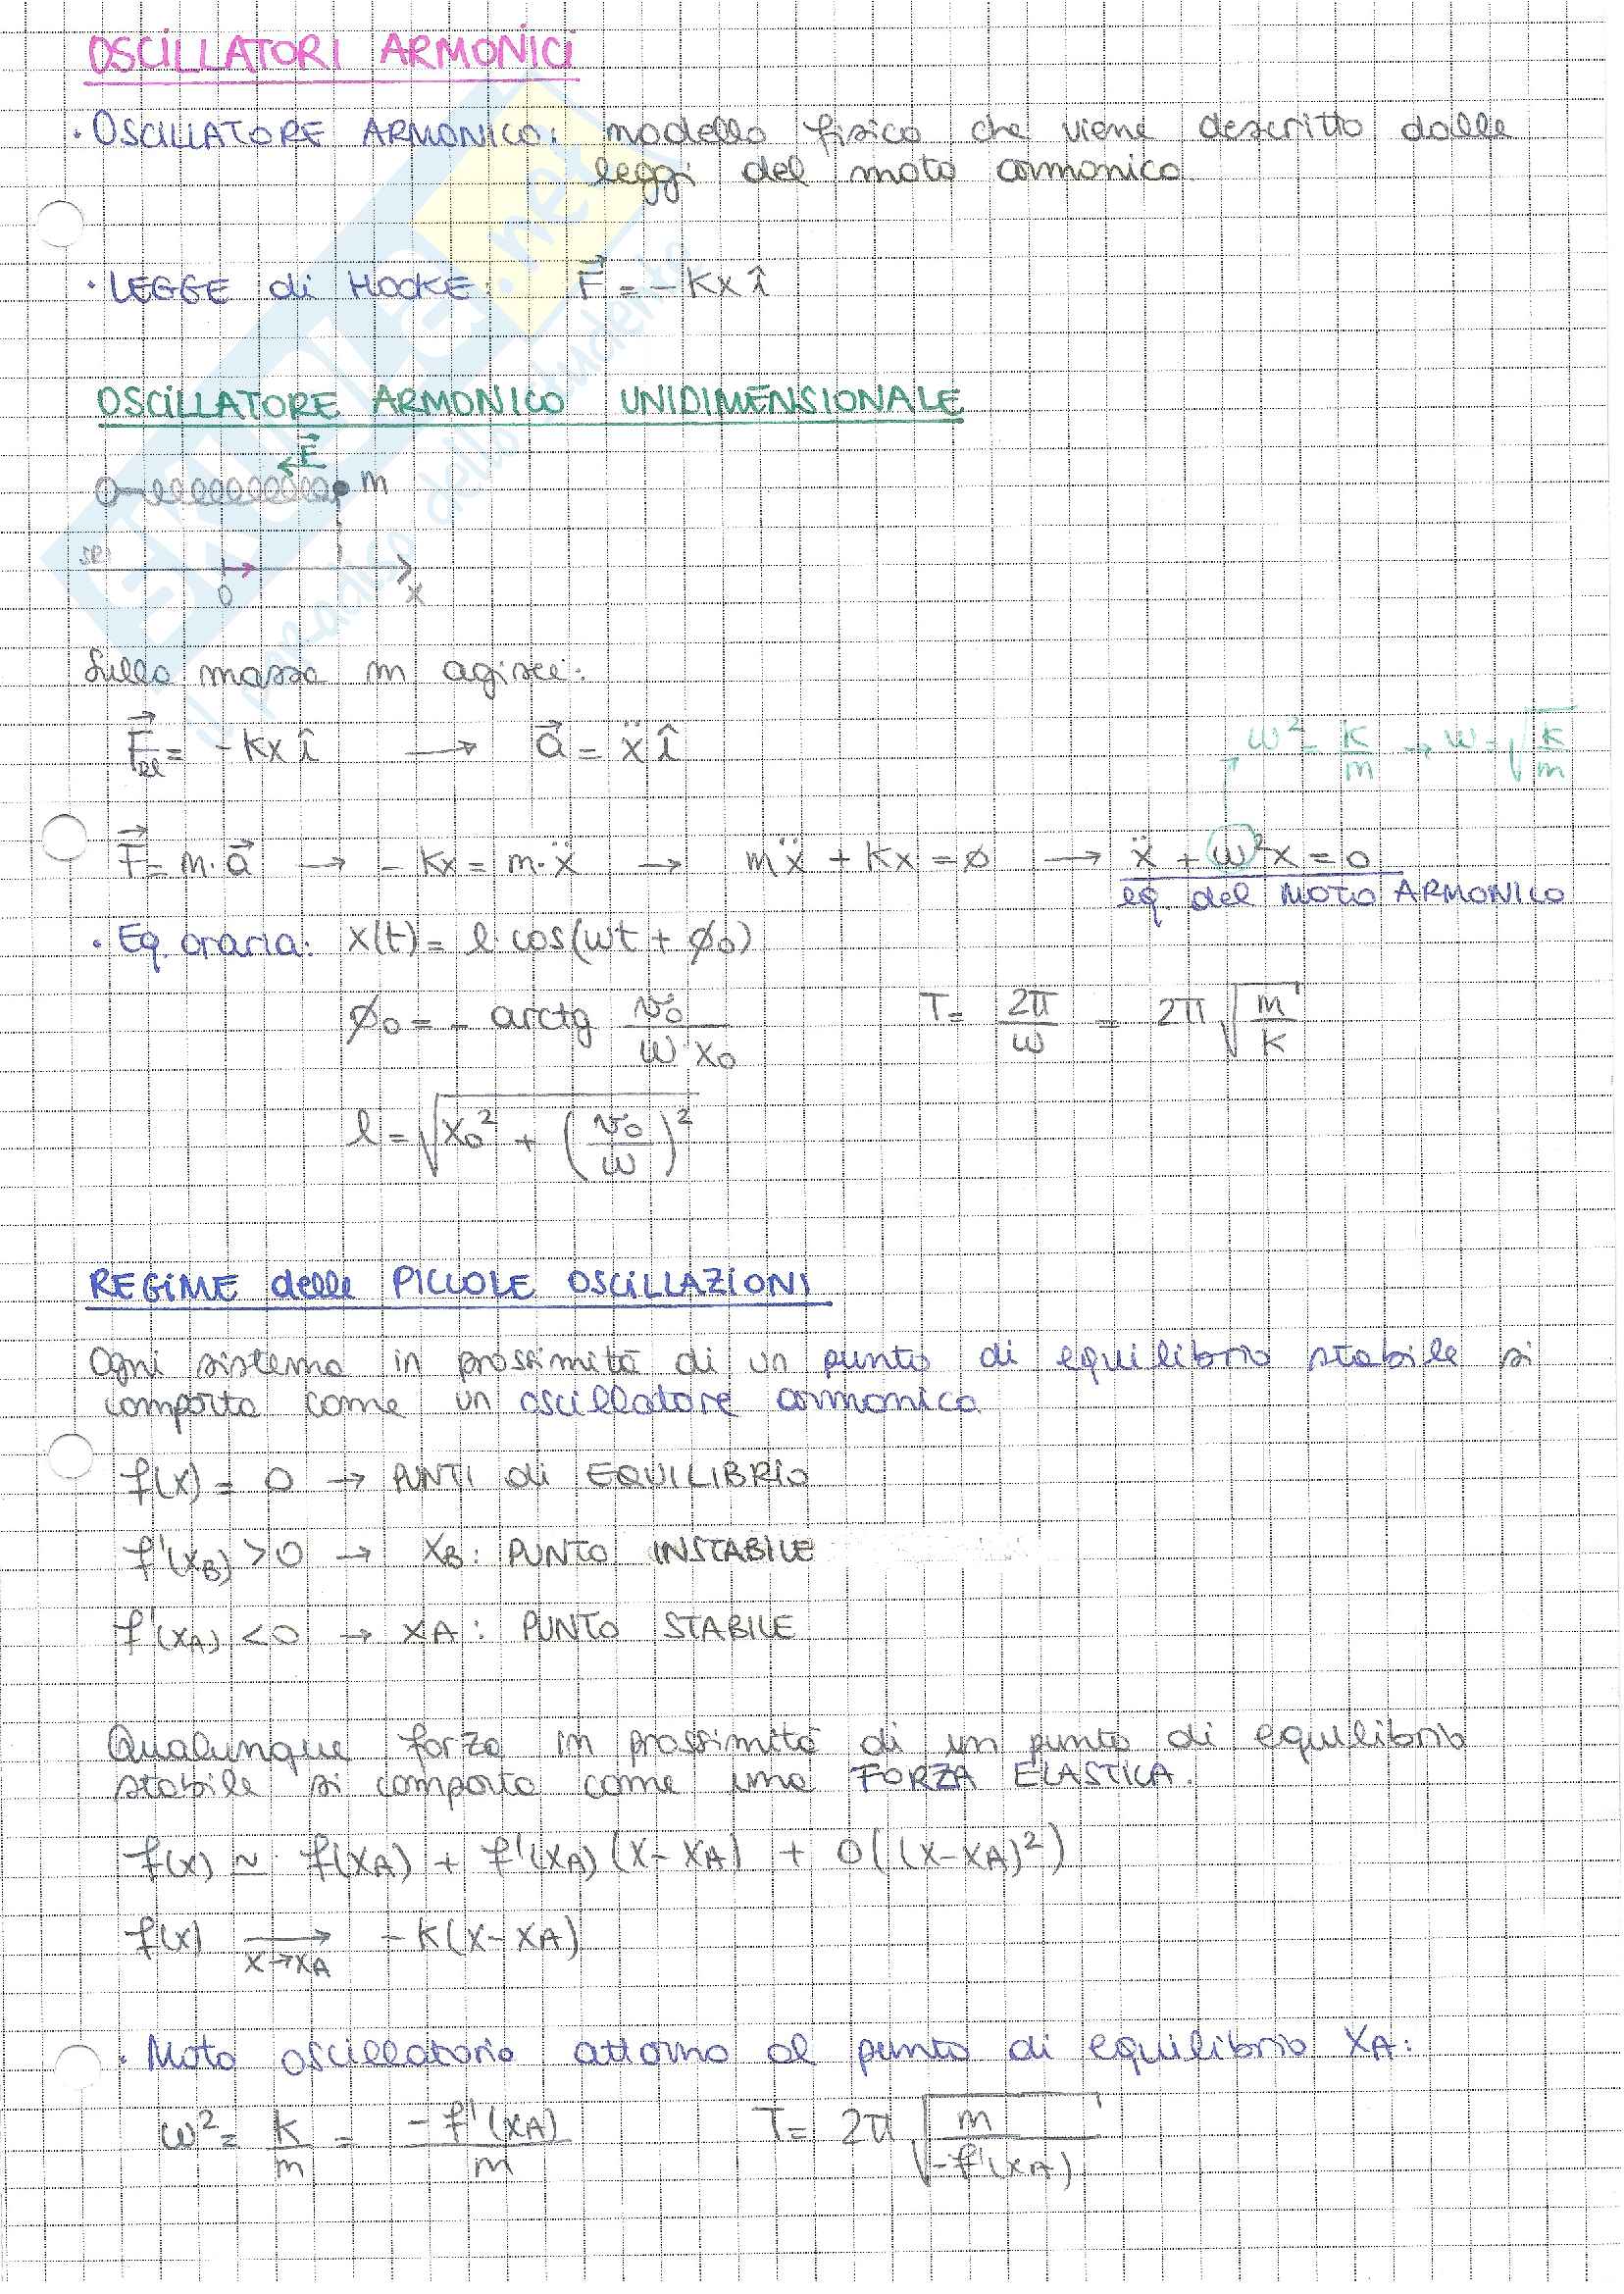 OSCILLATORI ARMONICI
• OSCILLATORE ARMONICO: modello fisico che viene descritto dalle
leggi del moto armonico.
• LEGGE di HOOKE: F⃗ = -Kx î
OSCILLATORE ARMONICO UNIDIMENSIONALE
F⃗
m
SR
0 x
Sulla massa m agisce:
F⃗el = -Kx î → a⃗ = ẍ î
ω² = K/m → ω = √(K/m)
F⃗ = m·a⃗ → -Kx = m·ẍ → mẍ + Kx = ∅ → ẍ + ω²x = 0
eq. del MOTO ARMONICO
• Eq. oraria: x(t) = l·cos(ωt + ϕ₀)
ϕ₀ = - arctg v₀/(ω x₀) T = 2π/ω = 2π √(m/K)
l = √(x₀² + (v₀/ω)²)
REGIME delle PICCOLE OSCILLAZIONI
Ogni sistema in prossimità di un punto di equilibrio stabile si
comporta come un oscillatore armonico
f(x) = 0 → PUNTI di EQUILIBRIO
f'(xB) > 0 → xB: PUNTO INSTABILE
f'(xA) < 0 → xA: PUNTO STABILE
Qualunque forza in prossimità di un punto di equilibrio
stabile si comporta come una FORZA ELASTICA.
f(x) ≃ f(xA) + f'(xA)(x-xA) + O((x-xA)²)
f(x) → -K(x-xA)
x→xA
• Moto oscillatorio attorno al punto di equilibrio xA:
ω² = K/m = -f'(xA)/m T = 2π √(m/-f'(xA))